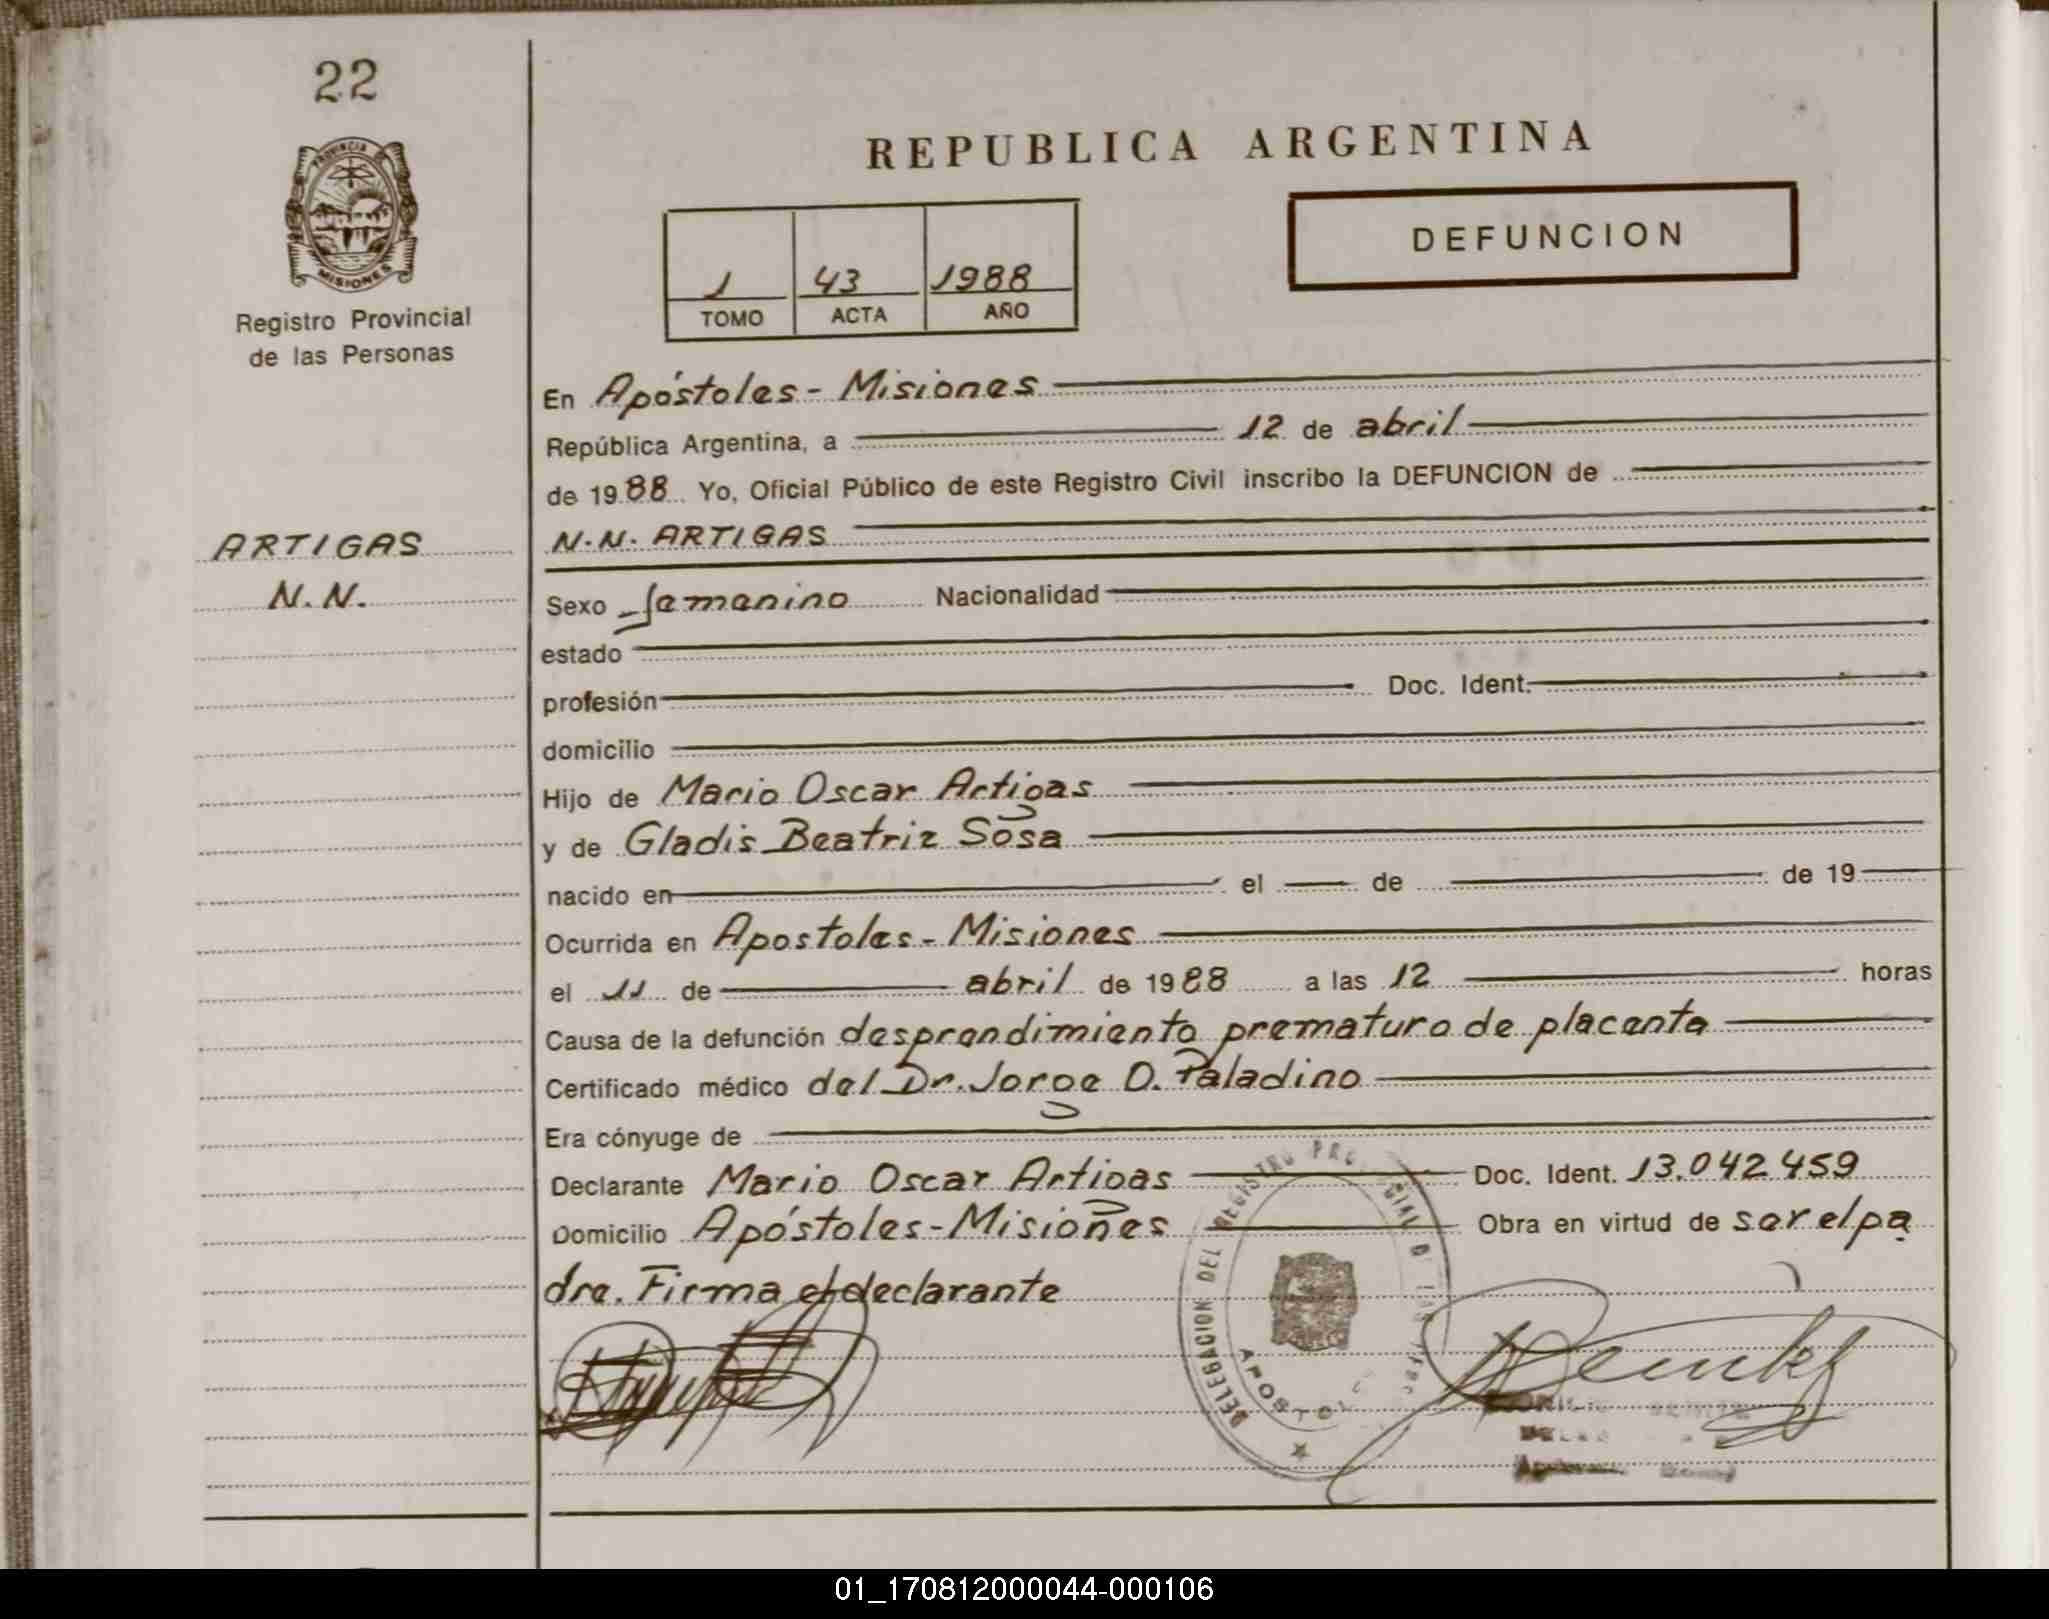 22
PROVINCIA DE
MISIONES
Registro Provincial
de las Personas
ARTIGAS
N.N.
REPUBLICA ARGENTINA
DEFUNCION
1 43 1988
TOMO ACTA AÑO
En Apóstoles - Misiones
República Argentina, a 12 de abril
de 1988 Yo, Oficial Público de este Registro Civil inscribo la DEFUNCION de
N.N. ARTIGAS
Sexo femenino Nacionalidad
estado
profesión Doc. Ident.
domicilio
Hijo de Mario Oscar Artigas
y de Gladis Beatriz Sosa
nacido en el de de 19
Ocurrida en Apostoles - Misiones
el 11 de abril de 1988 a las 12 horas
Causa de la defunción desprendimiento prematuro de placenta
Certificado médico del Dr. Jorge O. Paladino
Era cónyuge de
Declarante Mario Oscar Artigas Doc. Ident. 13.042.459
Domicilio Apóstoles - Misiones Obra en virtud de ser el pa
dre. Firma el declarante
DELEGACION DEL REGISTRO PROVINCIAL DE LAS
APOSTOLES
01_170812000044-000106